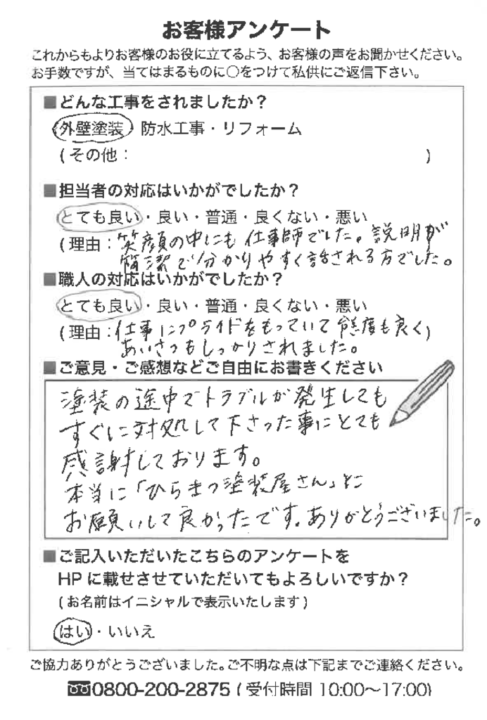 お客様アンケート
これからもよりお客様のお役に立てるよう、お客様の声をお聞かせください。
お手数ですが、当てはまるものに○をつけて私供にご返信下さい。
■どんな工事をされましたか？
外壁塗装・防水工事・リフォーム
(その他： )
■担当者の対応はいかがでしたか？
とても良い・良い・普通・良くない・悪い
(理由：笑顔の中にも仕事師でした。説明が
簡潔で分かりやすく話される方でした。
■職人の対応はいかがでしたか？
とても良い・良い・普通・良くない・悪い
(理由：仕事にプライドをもっていて態度も良く)
あいさつもしっかりされました。
■ご意見・ご感想などご自由にお書きください
塗装の途中でトラブルが発生しても
すぐに対処して下さった事にとても
感謝しております。
本当に「ひらまつ塗装屋さん」に
お願いして良かったです。ありがとうございました。
■ご記入いただいたこちらのアンケートを
HPに載せさせていただいてもよろしいですか？
(お名前はイニシャルで表示いたします)
はい・いいえ
ご協力ありがとうございました。ご不明な点は下記までご連絡ください。
0800-200-2875 (受付時間 10:00～17:00)